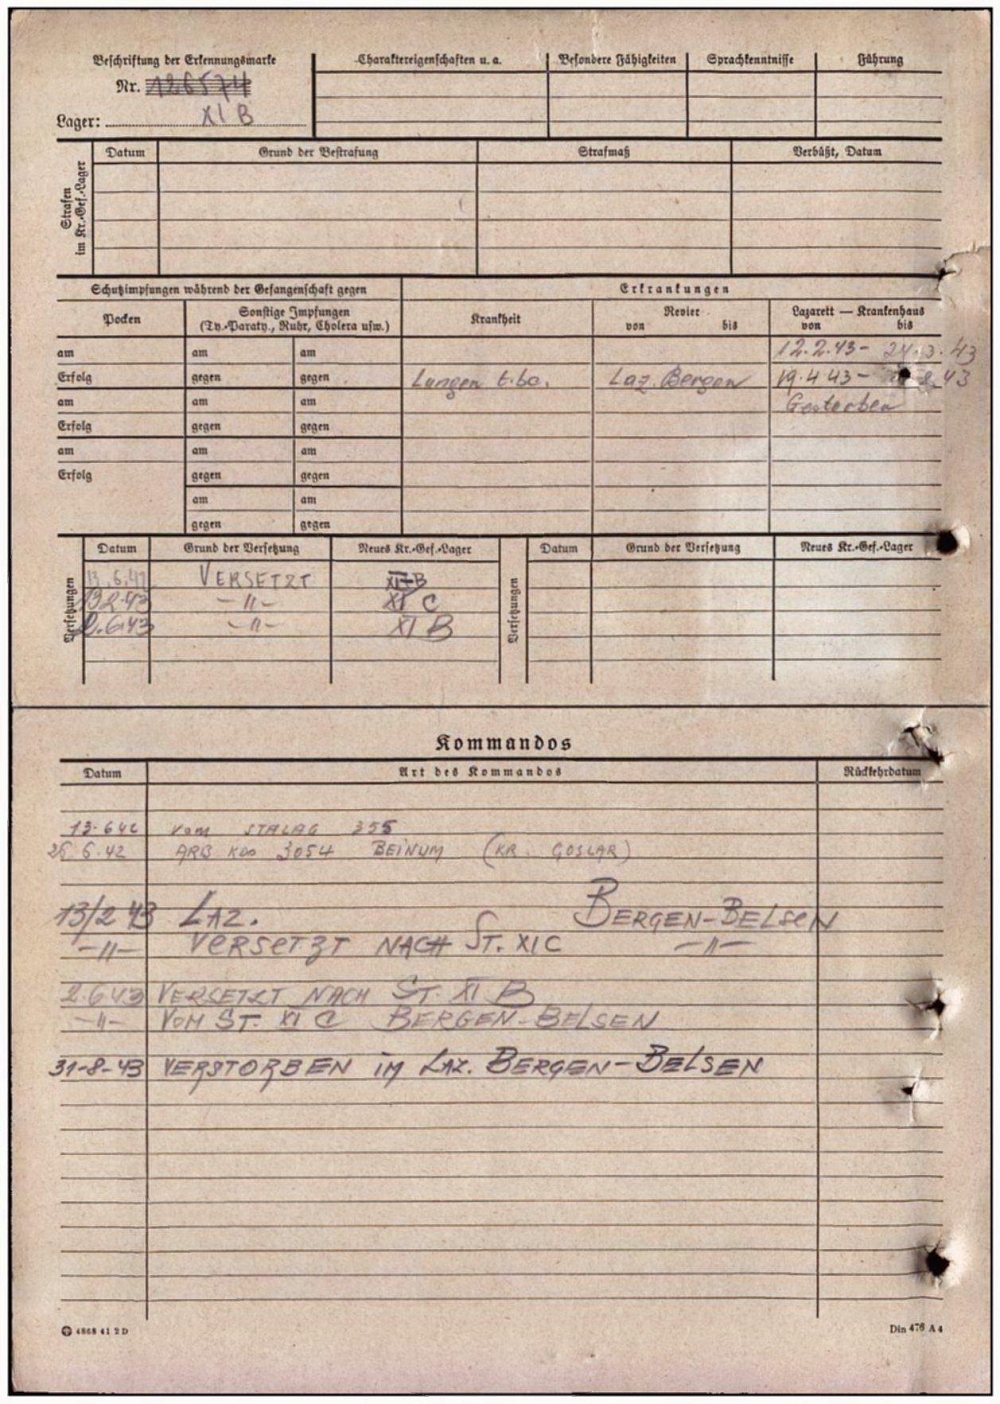 Beschriftung der Erkennungsmarke
Nr. 126574
Lager: XI B
Charaktereigenschaften u. a. Besondere Fähigkeiten Sprachkenntnisse Führung
Strafen im Kr.-Gef.-Lager
Datum Grund der Bestrafung Strafmaß Verbüßt, Datum
Schutzimpfungen während der Gefangenschaft gegen Erkrankungen
Pocken Sonstige Impfungen (Ty.-Paraty., Ruhr, Cholera usw.) Krankheit Revier von bis Lazarett — Krankenhaus von bis
am am am 12.2.43- 24.3.43
Erfolg gegen gegen Lungen t.bc. Laz. Bergen 19.4.43- 8.43
am am am Gestorben
Erfolg gegen gegen
am am am
Erfolg gegen gegen
am am
gegen gegen
Versetzungen
Datum Grund der Versetzung Neues Kr.-Gef.-Lager
13.6.42 VERSETZT XI B
13.2.43 -"- XI C
2.6.43 -"- XI B
Versetzungen
Datum Grund der Versetzung Neues Kr.-Gef.-Lager
Kommandos
Datum Art des Kommandos Rückkehrdatum
13.6.42 vom STALAG 355
26 6.42 ARB KDO 3054 BEINUM (KR. GOSLAR)
13/2 43 LAZ. BERGEN-BELSEN
-"- VERSETZT NACH ST. XI C -"-
2.6.43 VERSETZT NACH ST. XI B
-"- VOM ST. XI C BERGEN-BELSEN
31-8-43 VERSTORBEN iM LAZ. BERGEN-BELSEN
4868 41 2 D Din 476 A 4